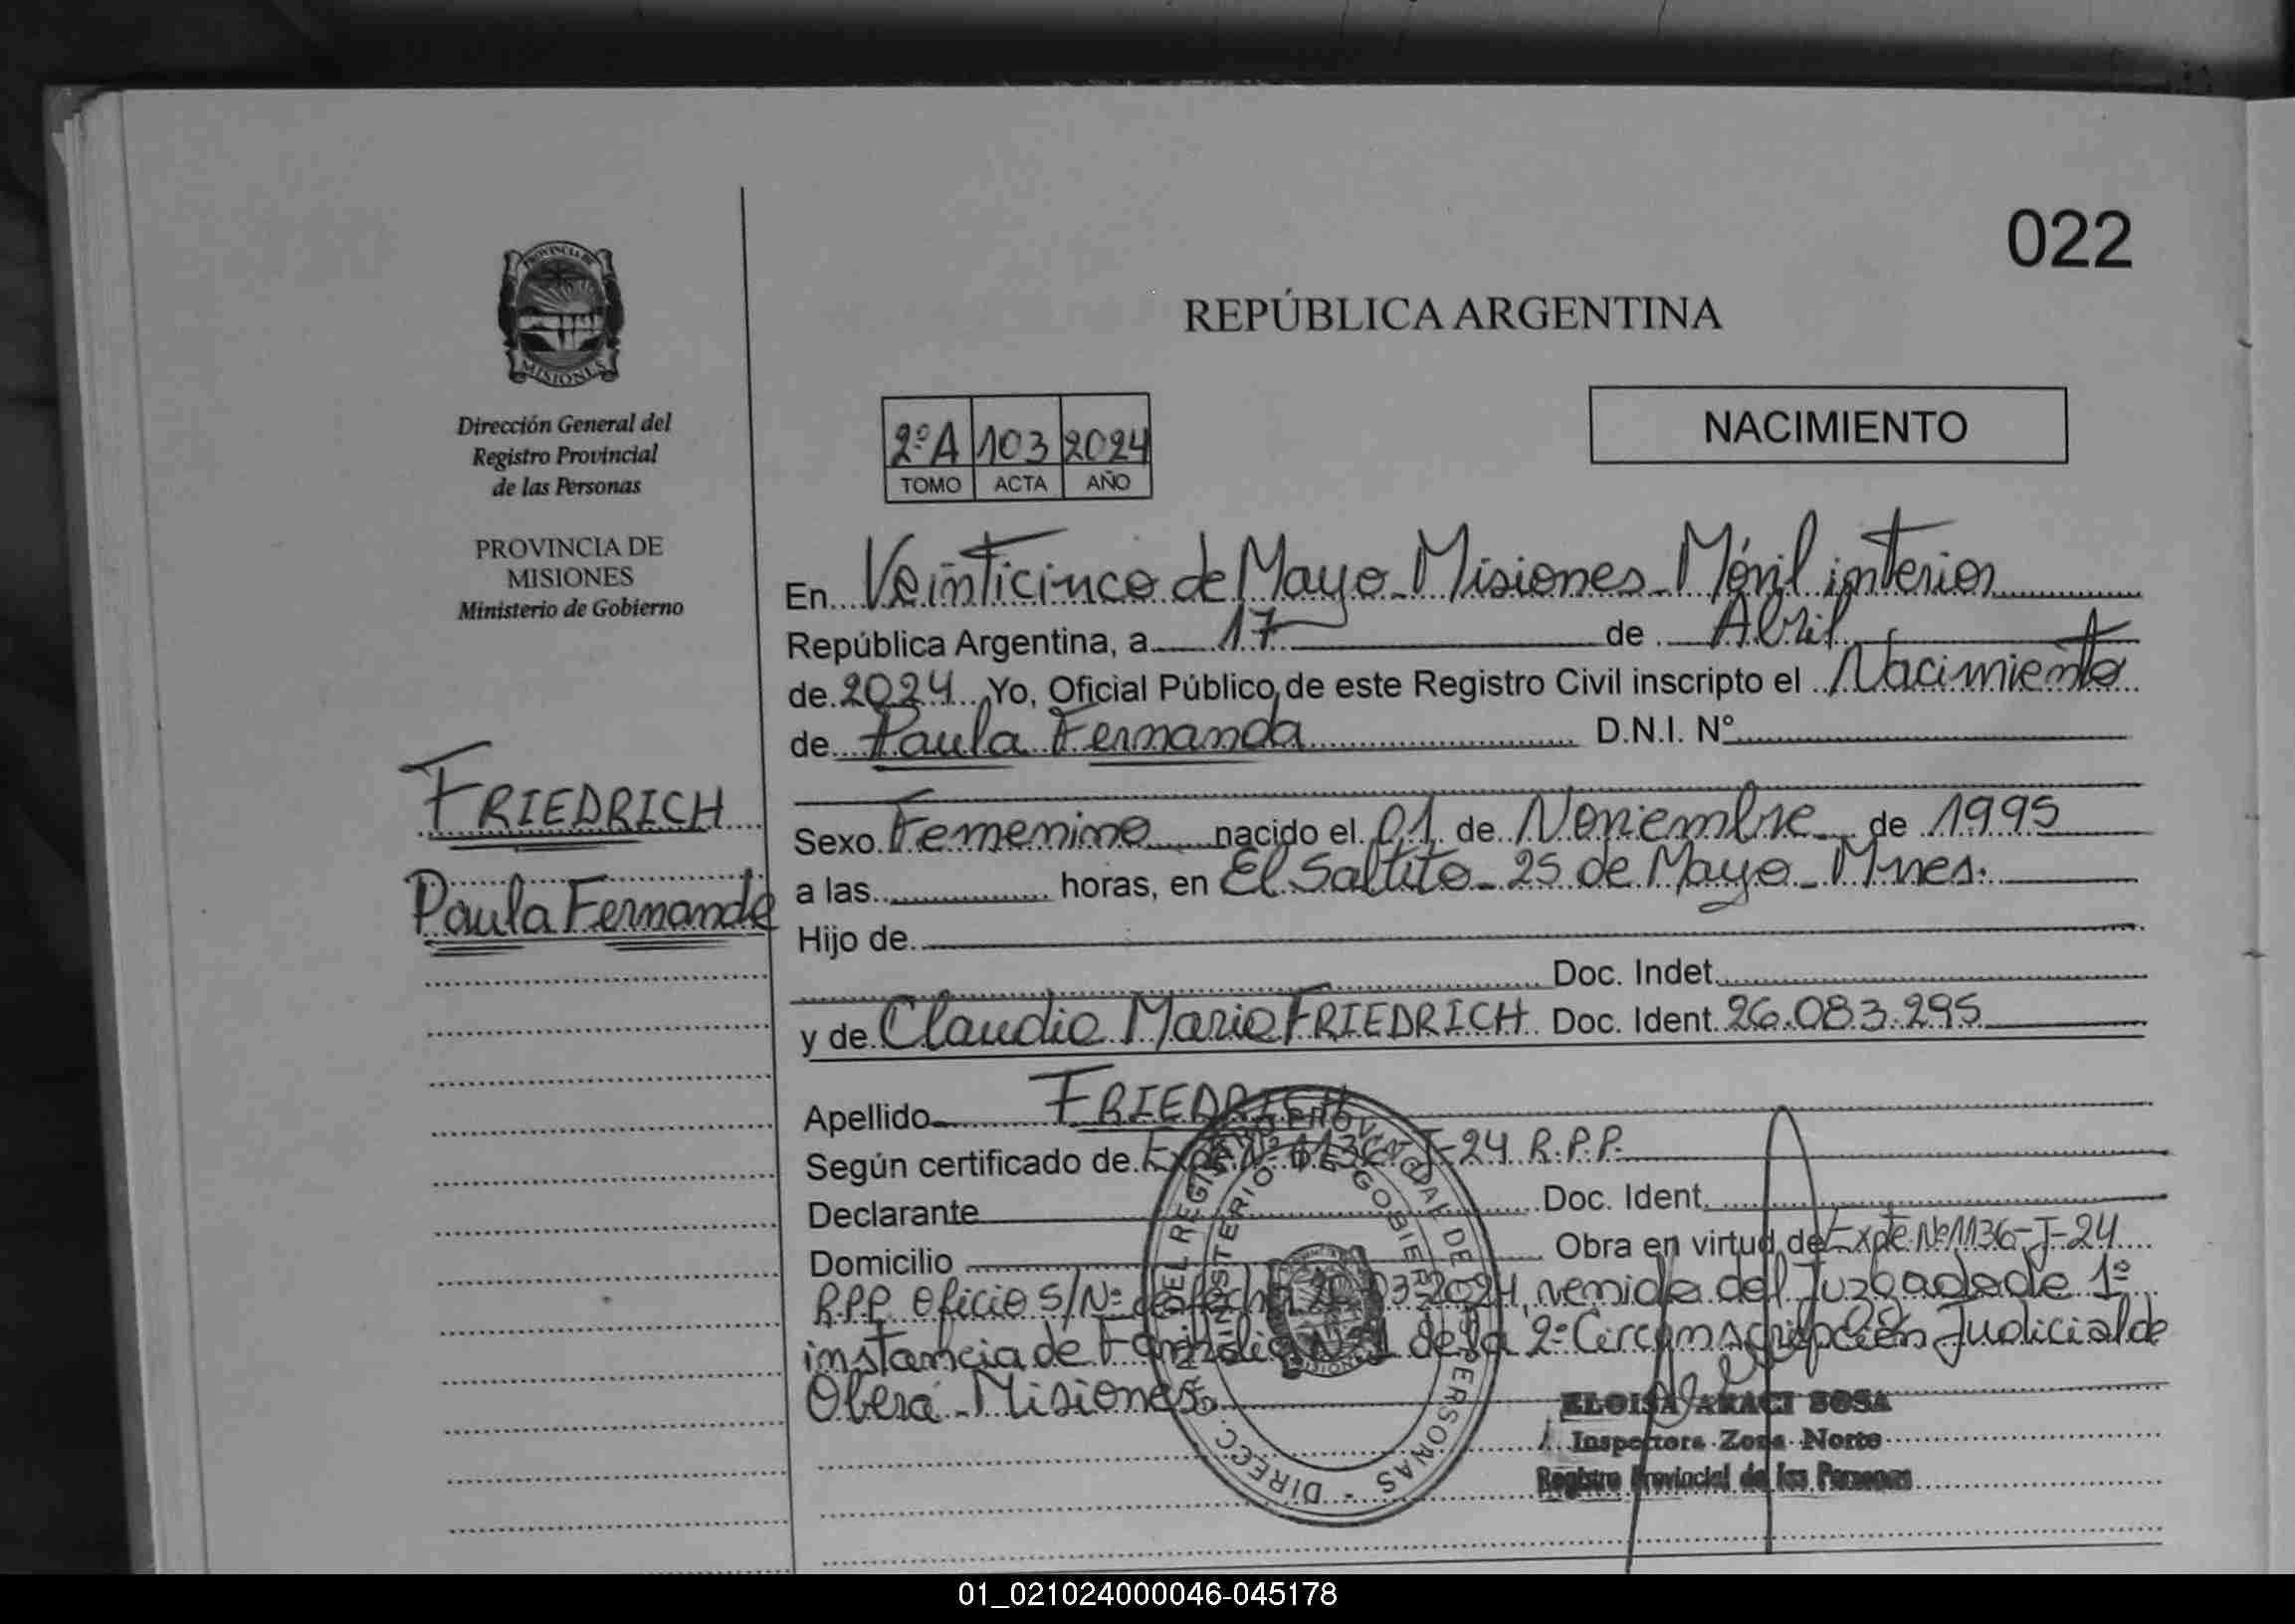 022
PROVINCIA DE
MISIONES
REPÚBLICA ARGENTINA
Dirección General del
Registro Provincial
de las Personas
PROVINCIA DE
MISIONES
Ministerio de Gobierno
2º A 103 2024
TOMO ACTA AÑO
NACIMIENTO
FRIEDRICH
Paula Fernanda
En Veinticinco de Mayo - Misiones - Móvil interior
República Argentina, a 17 de Abril
de 2024 Yo, Oficial Público de este Registro Civil inscripto el Nacimiento
de Paula Fernanda D.N.I. Nº
Sexo Femenino nacido el 01 de Noviembre de 1995
a las horas, en El Saltito - 25 de Mayo - Mnes.
Hijo de
Doc. Indet.
y de Claudia Maria FRIEDRICH Doc. Ident. 26.083.295
Apellido FRIEDRICH
Según certificado de Expte Nº 1136-J-24 R.P.P.
Declarante Doc. Ident.
Domicilio Obra en virtud de Expte Nº 1136-J-24
R.P.P. Oficio S/Nº de fecha 2024, venida del Juzgado de 1º
instancia de Familia Nº 1 de la 2º Circunscripción Judicial de
Oberá - Misiones
DIRECC. DEL REGISTRO PROVINCIAL DE PERSONAS
MINISTERIO DE GOBIERNO
MISIONES
ELOISA ARACI SOSA
Inspectora Zona Norte
Registro Provincial de las Personas
01_021024000046-045178